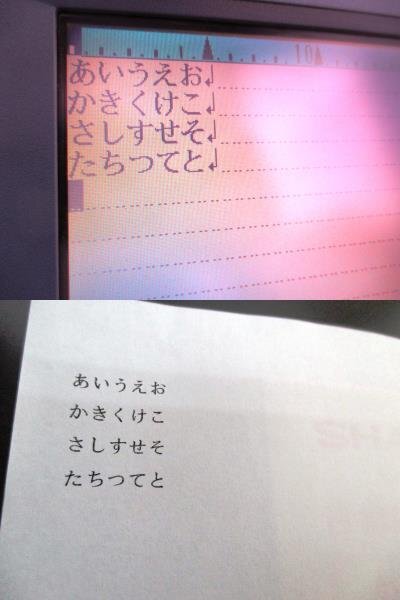 10
あいうえお↲
かきくけこ↲
さしすせそ↲
たちつてと↲
あいうえお
かきくけこ
さしすせそ
たちつてと